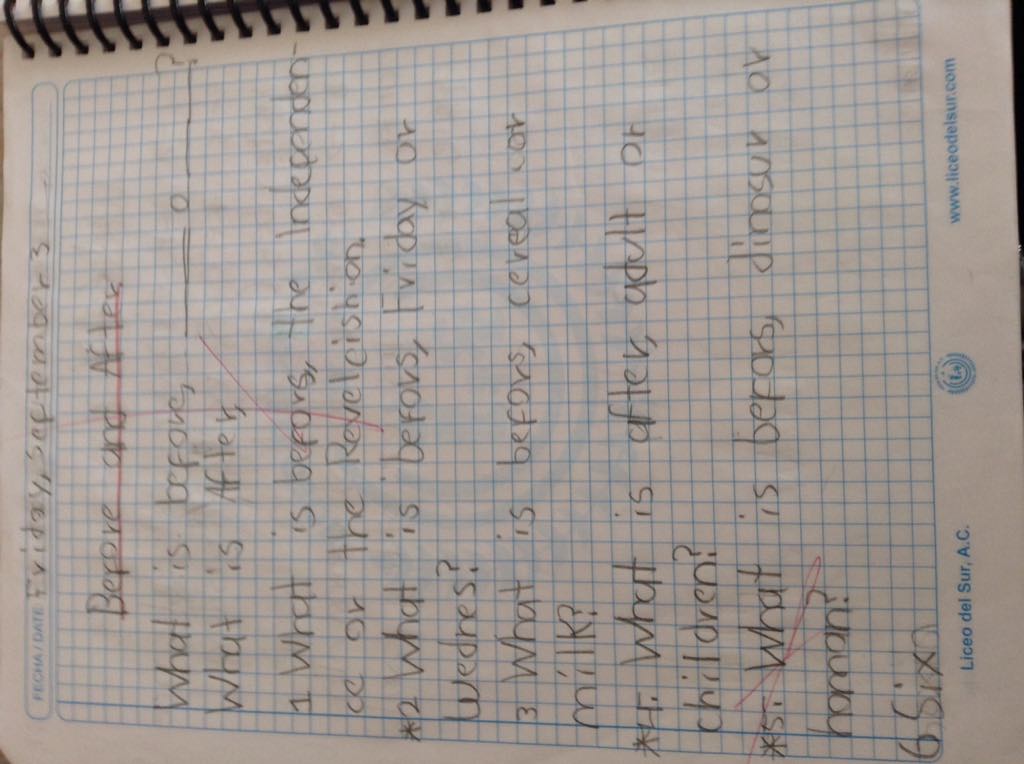 FECHA / DATE Friday, September 3
Before and After
What is before, ____ o ____?
What is After,
1 What is befors, the Independen-
ce or the Revelcishion,
*2 What is befors, Friday or
Wednes?
3 What is befors, cereal or
milk?
*4: What is after, adult or
children?
*5: What is befors, dinosur or
homan?
6 Sixn
Liceo del Sur, A.C.
www.liceodelsur.com